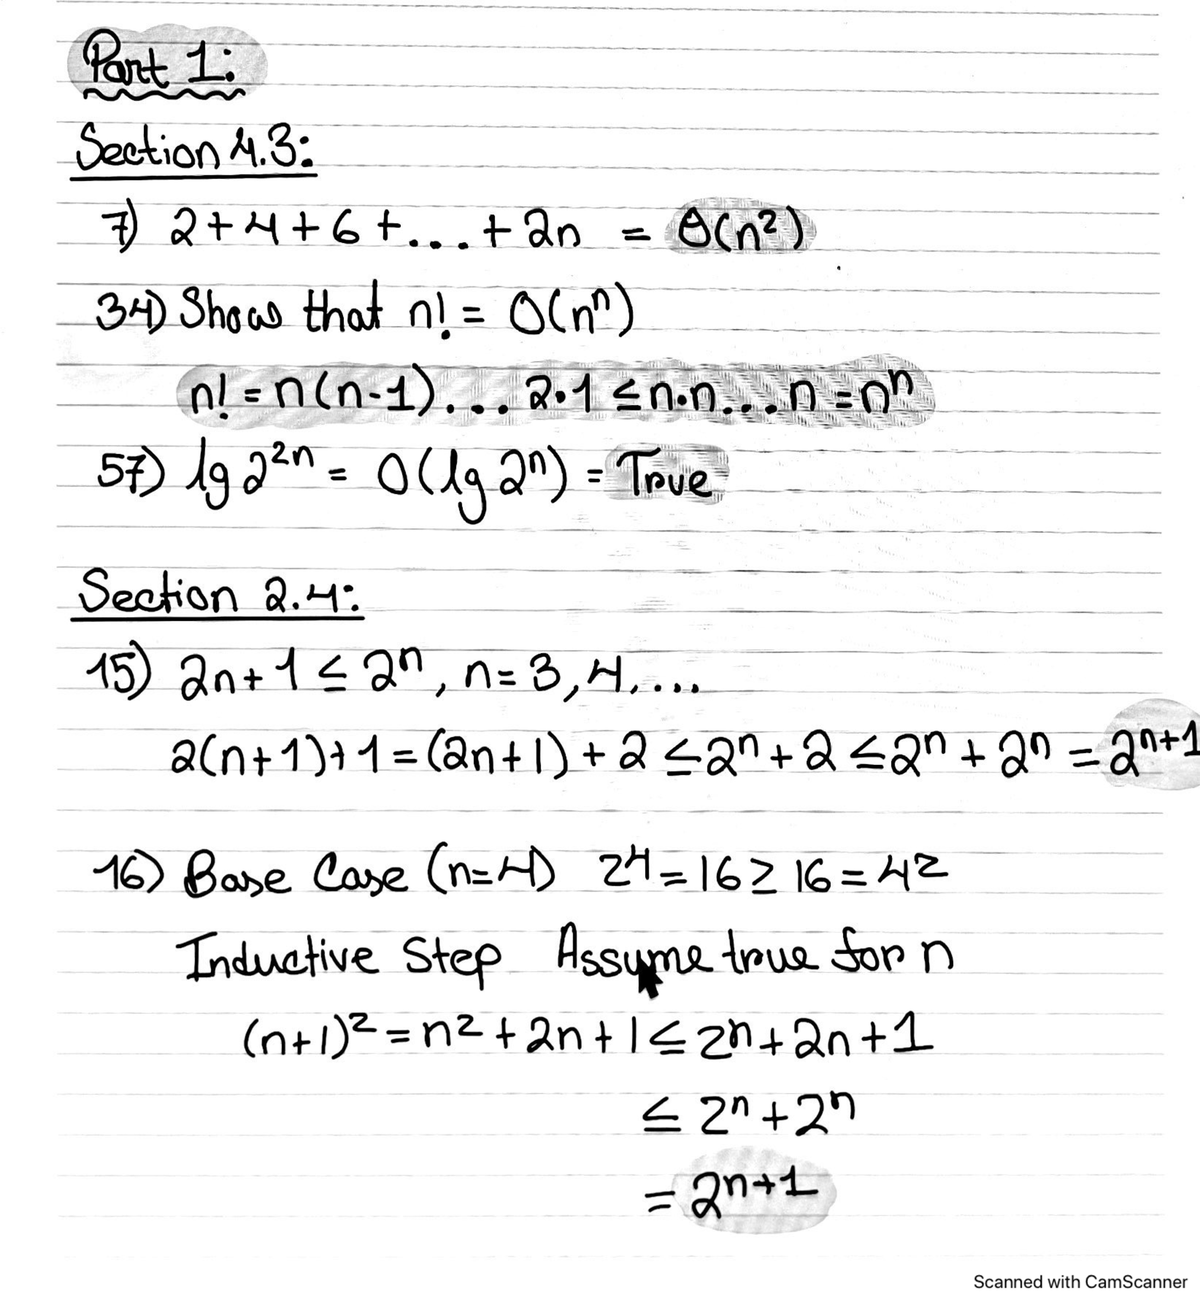 Part 1:
Section 4.3:
7) 2+4+6+...+2n = θ(n²)
34) Show that n! = O(nⁿ)
n! = n(n-1)... 2•1 ≤ n•n...n = nⁿ
57) lg 2²ⁿ = O(lg 2ⁿ) = True
Section 2.4:
15) 2n+1 ≤ 2ⁿ, n=3,4,...
2(n+1)+1 = (2n+1)+2 ≤ 2ⁿ+2 ≤ 2ⁿ+2ⁿ = 2ⁿ⁺¹
16) Base Case (n=4) 2⁴=16≥16=4²
Inductive Step Assume true for n
(n+1)² = n²+2n+1 ≤ 2ⁿ+2n+1
≤ 2ⁿ+2ⁿ
= 2ⁿ⁺¹
Scanned with CamScanner